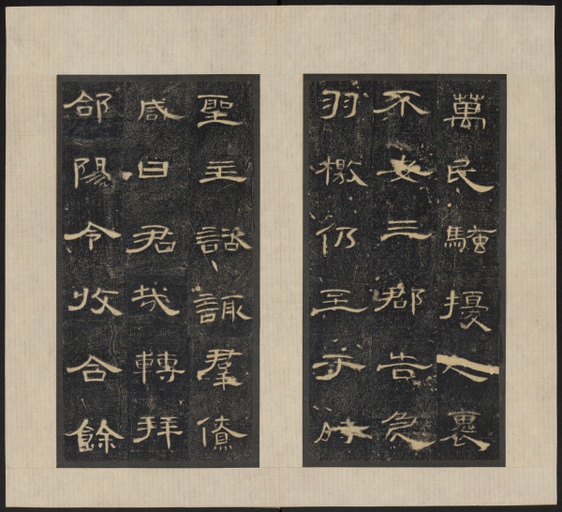 萬民騷擾人裹
不安三郡告急
羽檄仍至于時
聖主諮諏羣僚
咸曰君哉轉拜
郃陽令收合餘